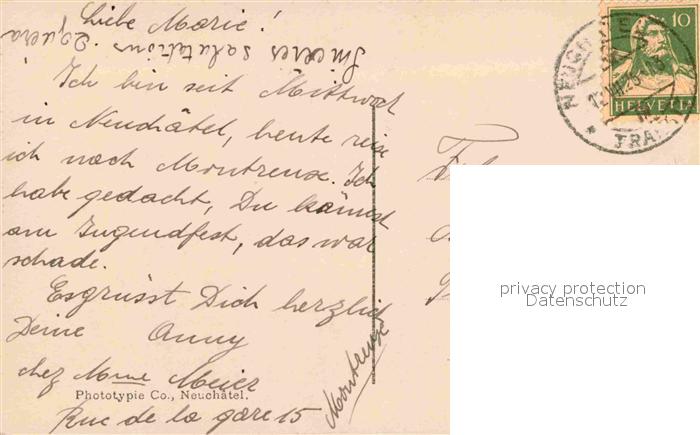 Liebe Marie!
Sincères salutations
Ich bin seit Mittwoch
in Neuchâtel, heute reise
ich nach Montreux. Ich
habe gedacht, Du kämest
am Jugendfest, das war
schade.
Es grüsst Dich herzlich
Deine Anny
chez Mme Meier
Phototypie Co., Neuchâtel.
Rue de la gare 15
Montreux
10
HELVETIA
privacy protection
Datenschutz